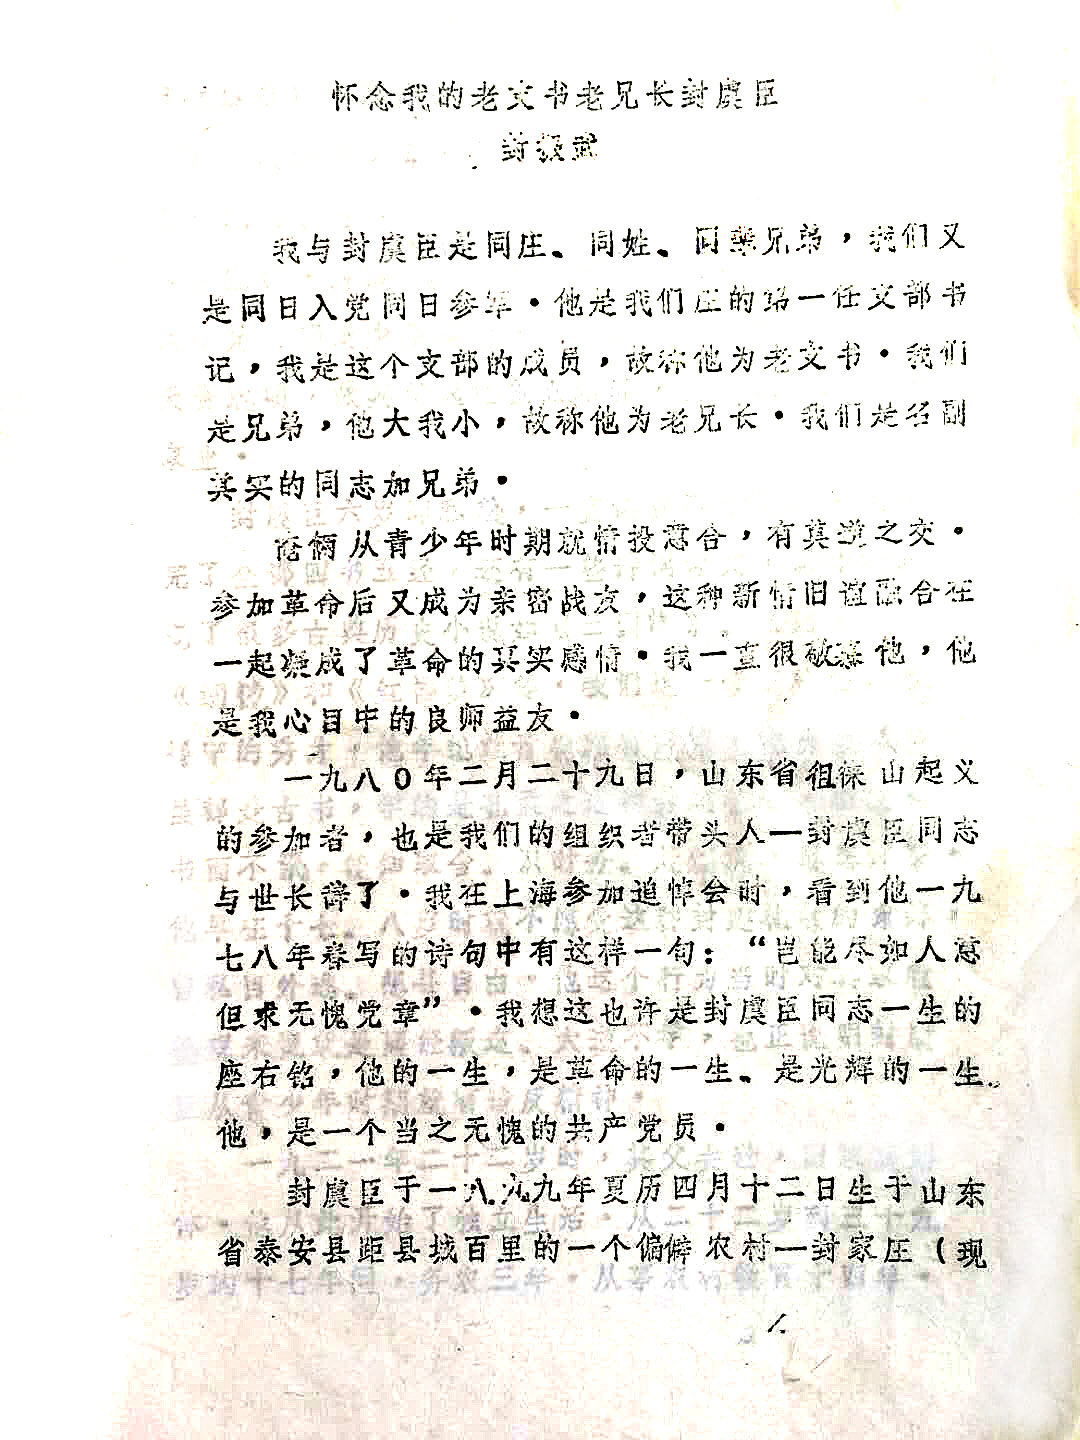 怀念我的老支书老兄长封虞臣
封振武
我与封虞臣是同庄、同姓、同辈兄弟，我们又
是同日入党同日参军．他是我们庄的第一任支部书
记，我是这个支部的成员，故称他为老支书．我们
是兄弟，他大我小，故称他为老兄长．我们是名副
其实的同志加兄弟．
俺俩从青少年时期就情投意合，有莫逆之交．
参加革命后又成为亲密战友，这种新情旧谊融合在
一起凝成了革命的真实感情．我一直很敬慕他，他
是我心目中的良师益友．
一九八〇年二月二十九日，山东省徂徕山起义
的参加者，也是我们的组织者带头人—封虞臣同志
与世长辞了．我在上海参加追悼会时，看到他一九
七八年春写的诗句中有这样一句：“岂能尽如人意
但求无愧党章”．我想这也许是封虞臣同志一生的
座右铭，他的一生，是革命的一生、是光辉的一生．
他，是一个当之无愧的共产党员．
封虞臣于一八九九年夏历四月十二日生于山东
省泰安县距县城百里的一个偏僻农村—封家庄（现
1.